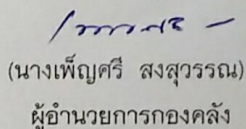 (นางเพ็ญศรี สงสุวรรณ)
ผู้อำนวยการกองคลัง